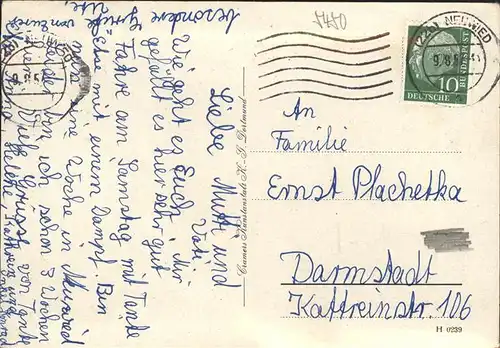 Liebe Mutti und
Vati.
Wie geht es Euch, mir
gefällt es hier sehr gut
Fahre am Samstag mit Tante
Else mit einem Dampf. Bin
eine Woche in Neuwied
bin ich schon 3 Wochen
Viele Grüsse von Tante
Helene Kathrina und
besondere
Grüsse von
NEUWIED
9.8.5
5450
(22a) NEUWIED
9.8.5
10
DEUTSCHE BUNDESPOST
An
Familie
Ernst Plachetka
Darmstadt
Kattreinstr. 106
Cramers Kunstanstalt K.-G. Dortmund
H 0239